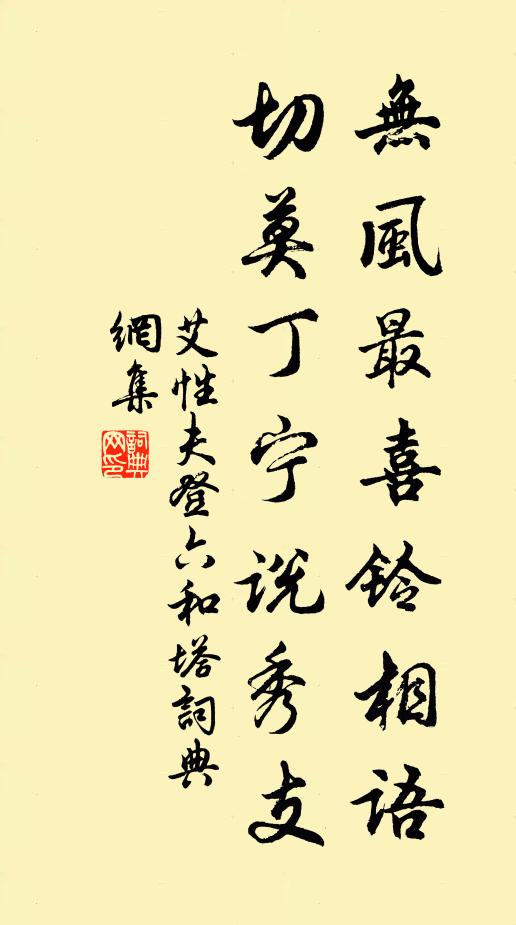 無風最喜鈴相語
切莫丁宁說秀支
艾性夫登六和塔詞典
網集
詞典网印